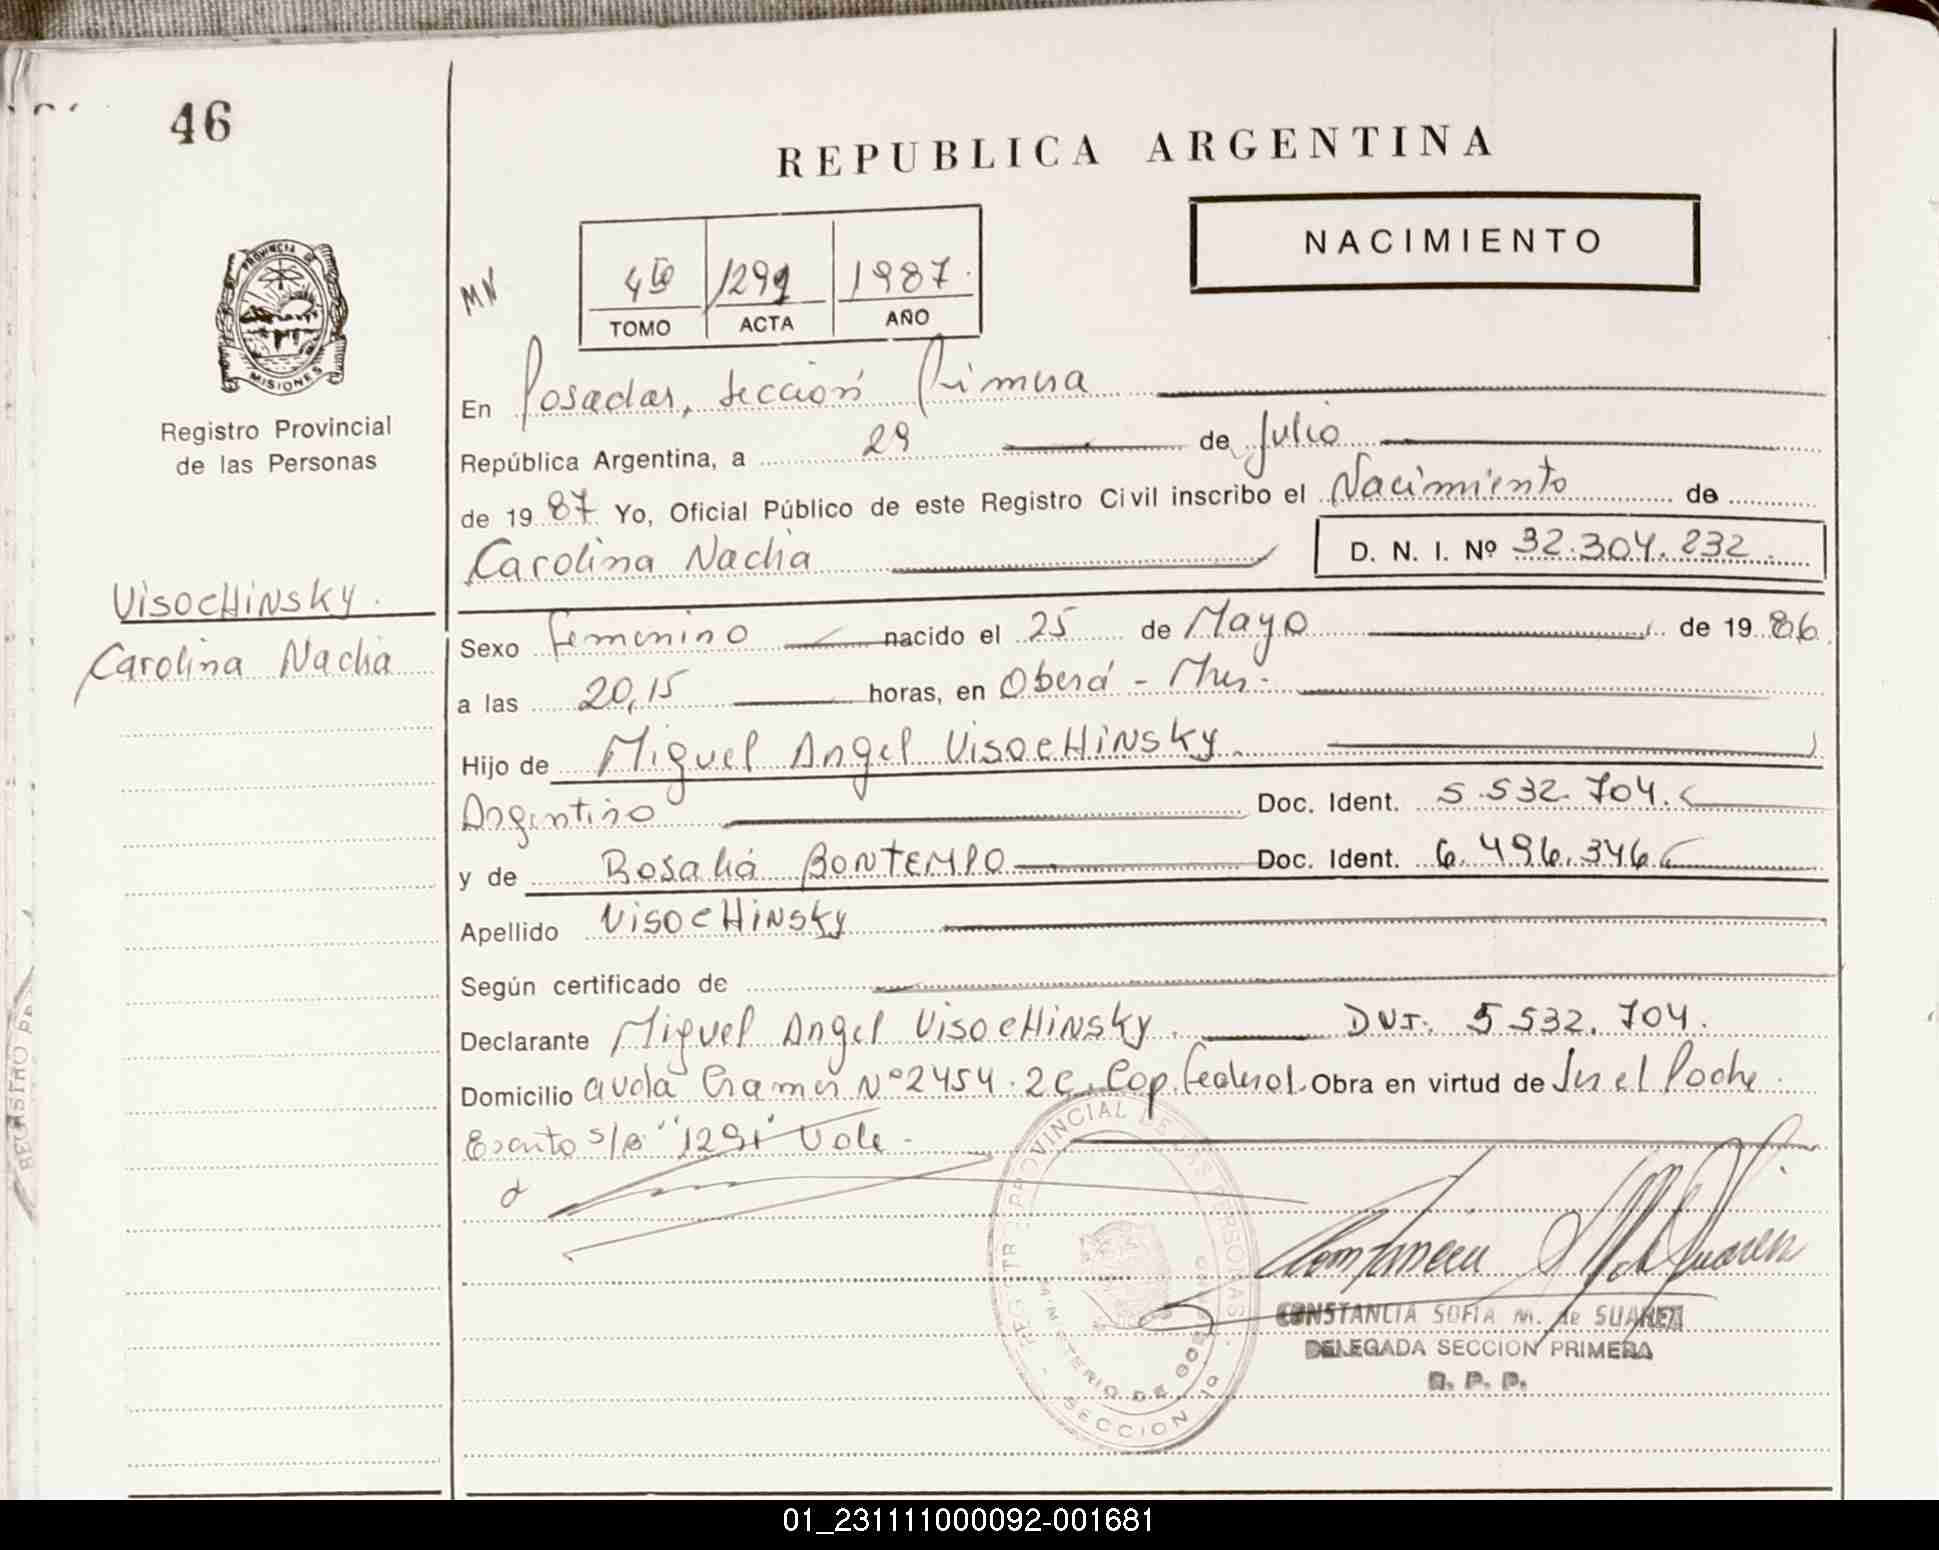 46
REPUBLICA ARGENTINA
NACIMIENTO
MN
4to 1291 1987.
TOMO ACTA AÑO
PROVINCIA DE MISIONES
Registro Provincial
de las Personas
VisocHiNsky.
Carolina Nadia
En Posadas, sección Primera
República Argentina, a 29 de Julio
de 1987. Yo, Oficial Público de este Registro Civil inscribo el Nacimiento de
Carolina Nadia D. N. I. Nº 32.304.232.
Sexo femenino nacido el 25 de Mayo de 1986
a las 20,15 horas, en Oberá - Mnes.
Hijo de Miguel Angel VisocHiNsky.
Argentino Doc. Ident. 5.532.704.
y de Rosalía BONTEMPO Doc. Ident. 6.496.346
Apellido VisocHiNsky
Según certificado de
Declarante Miguel Angel VisocHiNsky. DNI. 5.532.704.
Domicilio avda Cramer Nº 2454. 2C. Cap. Federal. Obra en virtud de
s/b "1291" Vale.
REGISTRO PROVINCIAL DE LAS PERSONAS
MINISTERIO DE GOBIERNO
SECCION 1ª
CONSTANCIA SOFIA M. de SUAREZ
DELEGADA SECCION PRIMERA
R. P. P.
01_231111000092-001681